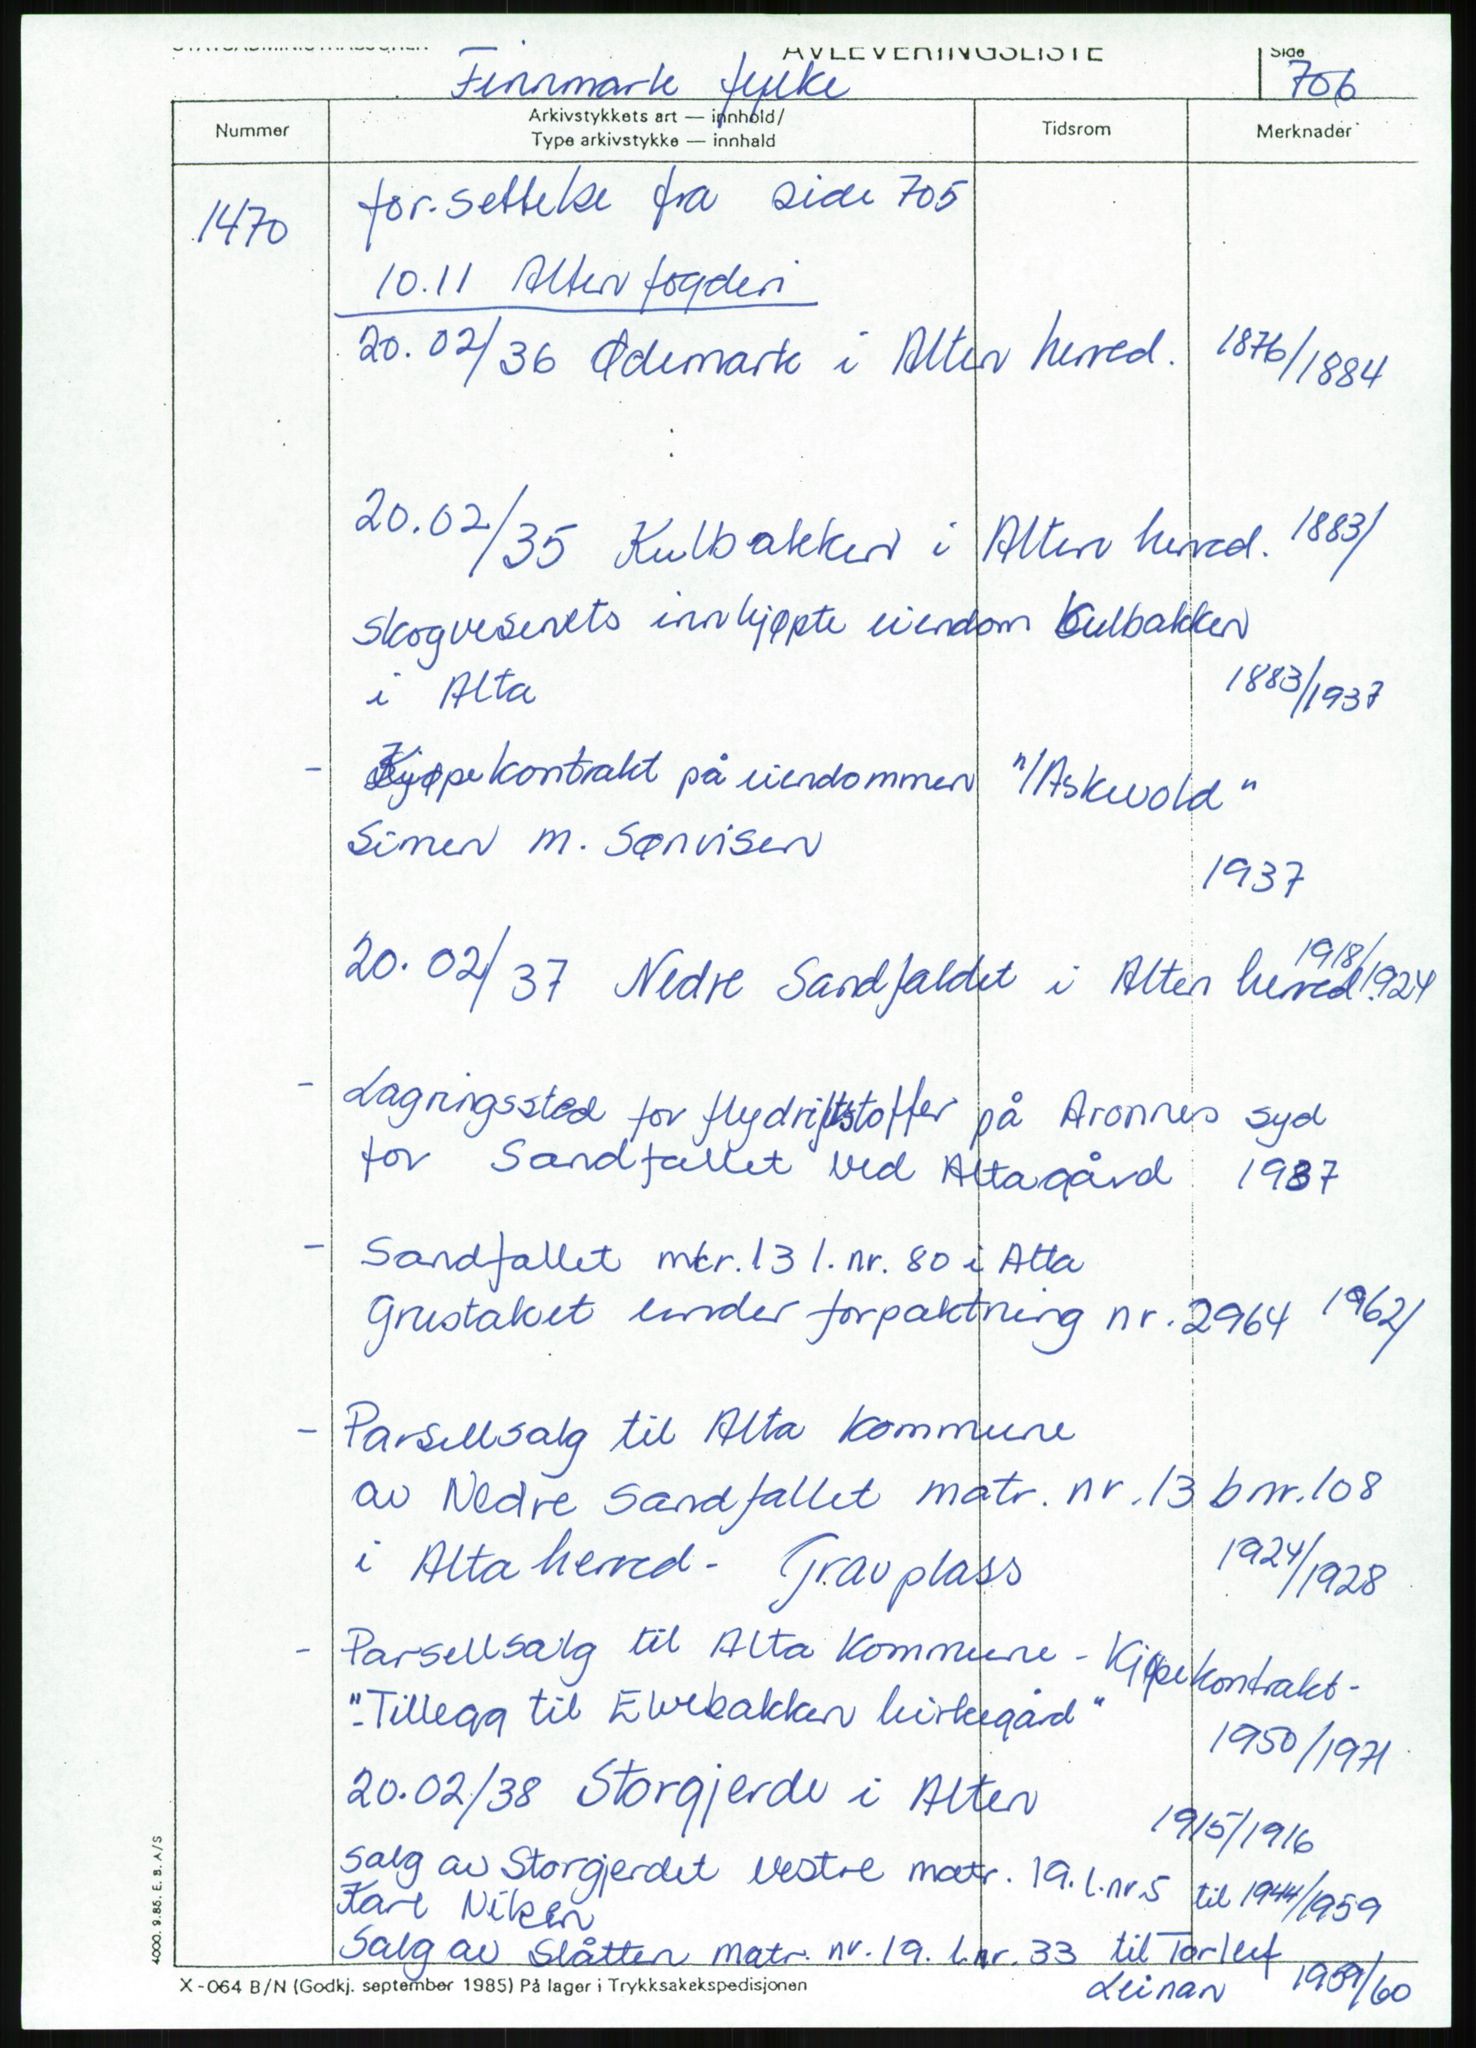 STATSADMINISTRASJONEN AVLEVERINGSLISTE Side
Finnmark fylke 706
Nummer Arkivstykkets art — innhold/ Tidsrom Merknader
Type arkivstykke — innhald
1470 for-settelse fra side 705
10.11 Alten fogderi
20.02/36 Ødemark i Alten herred. 1876/1884
20.02/35 Kulbakken i Alten herred. 1883/
skogvesenets innkjøpte eiendom Kulbakken
i Alta 1883/1937
- Kjøpekontrakt på eiendommen "Askvold"
Simen M. Sønvisen
1937
20.02/37 Nedre Sandfaldet i Alten herred 1918/1924
- Lagringssted for flydriftstoffer på Aronnes syd
for Sandfallet ved Altagård 1937
- Sandfallet mtr. 13 l.nr. 80 i Alta
Grustaket under forpaktning nr. 2964 1962/
- Parsellsalg til Alta kommune
av Nedre Sandfallet matr. nr. 13 bnr. 108
i Alta herred - Gravplass 1924/1928
- Parsellsalg til Alta kommune - Kjøpekontrakt -
"-Tillegg til Elvebakken kirkegård" 1950/1971
20.02/38 Storgjerde i Alten 1915/1916
Salg av Storgjerdet vestre matr. 19. l.nr.5 til 1944/1959
Kare Nilsen
Salg av Slåtten matr. nr. 19. l.nr. 33 til Torleif
Leinan 1959/60
X-064 B/N (Godkj. september 1985) På lager i Trykksakekspedisjonen
4000. 9.85. E. B. A/S